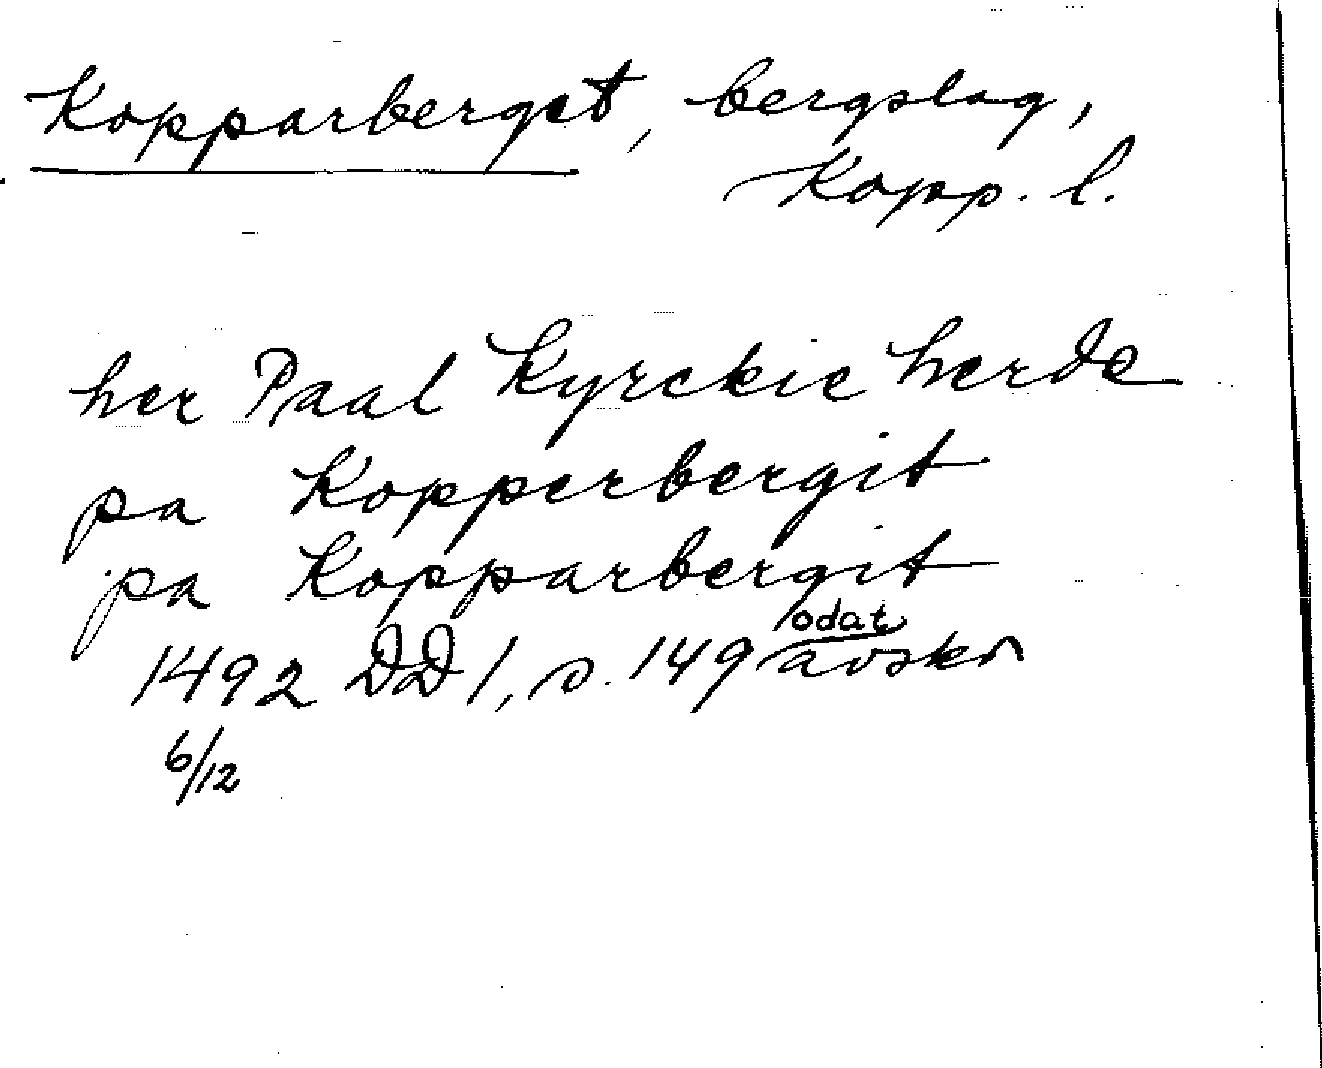 Kopparberget, bergslag,
Kopp. l.
her Paal Kyrckie herde
pa Kopperbergit
pa Kopparbergit
1492 DD 1, s. 149 odat avskr
6/12